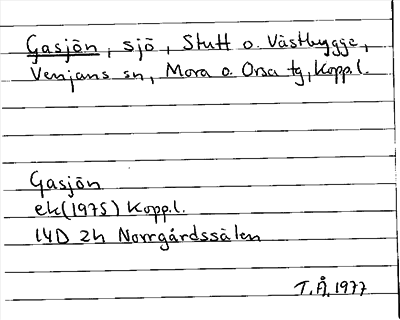 Gasjön, sjö, Stutt o. Västbygge,
Venjans sn, Mora o. Orsa tg, Kopp.l.
Gasjön
ek(1975) Kopp.l.
14D 2h Norrgårdssälen
T.Å. 1977